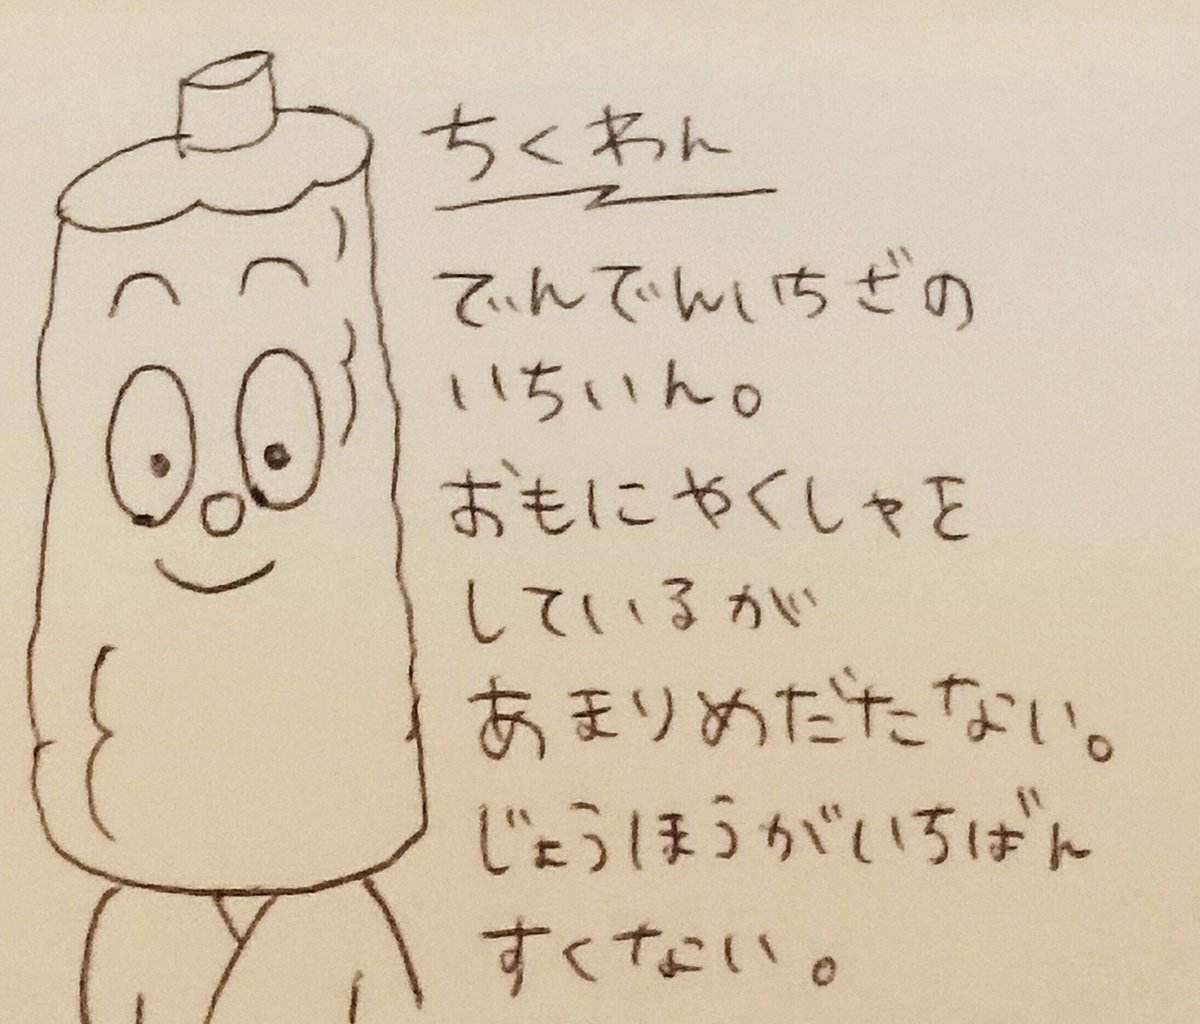 ちくわん
でんでんいちざの
いちいん。
おもにやくしゃを
しているが
あまりめだたない。
じょうほうがいちばん
すくない。